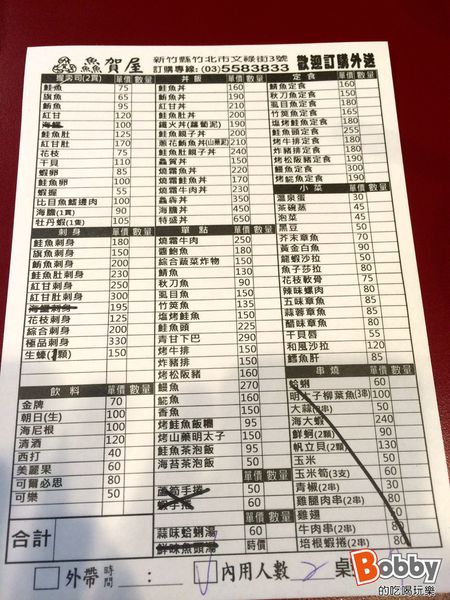 鱻賀屋
新竹縣竹北市文祿街3號
訂購專線:(03)5583833
歡迎訂購外送
握壽司(2貫) 單價 數量
鮭魚 75
旗魚 65
鮪魚 95
紅甘 110
海鱺 100
鮭魚肚 125
紅甘肚 170
花枝 75
干貝 110
蝦卵 85
鮭魚卵 100
蝦握 55
比目魚鰭邊肉 100
海膽(1貫) 90
牡丹蝦(1隻) 105
刺身 單價 數量
鮭魚刺身 180
旗魚刺身 150
鮪魚刺身 200
鮭魚肚刺身 230
紅甘刺身 250
紅甘肚刺身 300
海鱺刺身 195
花枝刺身 125
綜合刺身 200
極品刺身 330
生蠔(1顆) 150
飲料 單價 數量
金牌 70
朝日(生) 100
海尼根 100
清酒 120
西打 40
美麗果 60
可爾必思 80
可樂 50
合計
丼飯 單價 數量
鮭魚丼 160
鮪魚丼 190
紅甘丼 240
鮭魚肚丼 200
鐵火丼(蘿蔔泥) 190
鮭魚親子丼 200
蔥花鮪魚丼(山藥泥) 210
鮭魚肚親子丼 240
鱻賀丼 150
燒霜鮭魚丼
燒霜牛肉丼
鱻犇丼 350
海膽丼 450
特盛丼 650
單點 單價 數量
燒霜牛肉 250
醬鮑魚 180
綜合蔬菜炸物 150
鯖魚 130
秋刀魚 90
虱目魚 150
竹莢魚 135
塩烤鮭魚 150
鮭魚頭 225
青甘下巴 290
烤牛排 150
炸豬排 150
烤松阪豬 160
鰻魚 270
鯱魚 160
香魚 150
烤鮭魚飯糰 50
烤山藥明太子 150
鮭魚茶泡飯 90
海苔茶泡飯 50
單價 數量
蘆筍手捲 50
蝦手捲 60
單價 數量
蒜味蛤蜊湯 50
鮮味魚頭湯 時價
定食 單價 數量
鯖魚定食 160
秋刀魚定食 120
虱目魚定食 180
竹莢魚定食 165
塩烤鮭魚定食 180
鮭魚頭定食 255
烤牛排定食 180
炸豬排定食 180
烤松阪豬定食 190
鰻魚定食 300
烤鯱魚定食 190
小菜 單價 數量
溫泉蛋 30
茶碗蒸 45
泡菜 45
雲豆 50
芥末章魚 60
黃金白魚 90
龍蝦沙拉 50
魚子莎拉 60
花枝軟骨 75
辣味螺肉 80
五味章魚 85
蒜蓉章魚 85
醋味章魚 85
干貝唇 90
和風沙拉 120
鱈魚肝 85
串燒 單價 數量
蛤蜊 60
明太子柳葉魚(3串) 100
大蒜(2串)
海大蝦 240
鮮蚵(2顆) 90
帆立貝(2顆) 130
玉米 50
玉米筍(3支) 60
青椒(2串)
雞腿肉串(2串) 80
雞翅
牛肉串(2串) 80
培根蝦捲(2串) 80
外帶 時間 :
內用人數 2 桌
Bobby
的吃喝玩樂